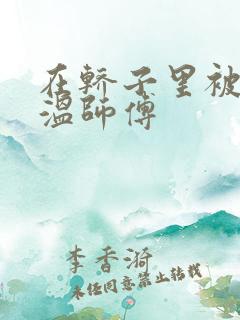 在轿子里被
温师傅
李香漪
未经同意禁止转载